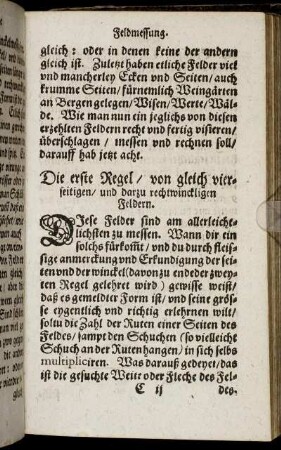 Feldmessung.
gleich: oder in denen keine der andern
gleich ist. Zuletzt haben etliche Felder viel
vnd mancherley Ecken vnd Seiten/ auch
krumme Seiten/ fürnemlich Weingärten
an Bergen gelegen/ Wisen/ Werte/ Wäl-
de. Wie man nun ein jeglichs von diesen
erzehlten Feldern recht vnd fertig visieren/
überschlagen/ messen vnd rechnen soll/
darauff hab jetzt acht.
Die erste Regel/ von gleich vier-
seitigen/ vnd darzu rechtwinckligen
Feldern.
DIese Felder sind am allerleiche-
lichsten zu messen. Wann dir ein
solchs fürkomt/ vnd du durch fleis-
sige anmerckung vnd Erkundigung der sei-
ten vnd der winckel (davon zu ende der zwey-
ten Regel gelehret wird) gewisse weist/
daß es gemeldter Form ist/ vnd seine grös-
se eygentlich vnd richtig erlehrnen wilt/
soltu die Zahl der Ruten einer Seiten des
Feldes/ sampt den Schuchen (so vielleicht
Schuch an der Ruten hangen) in sich selbs
multipliciren. Was darauß gedeyet/ das
ist die gesuchte Weite oder Fleche des Fel-
C ij
des.